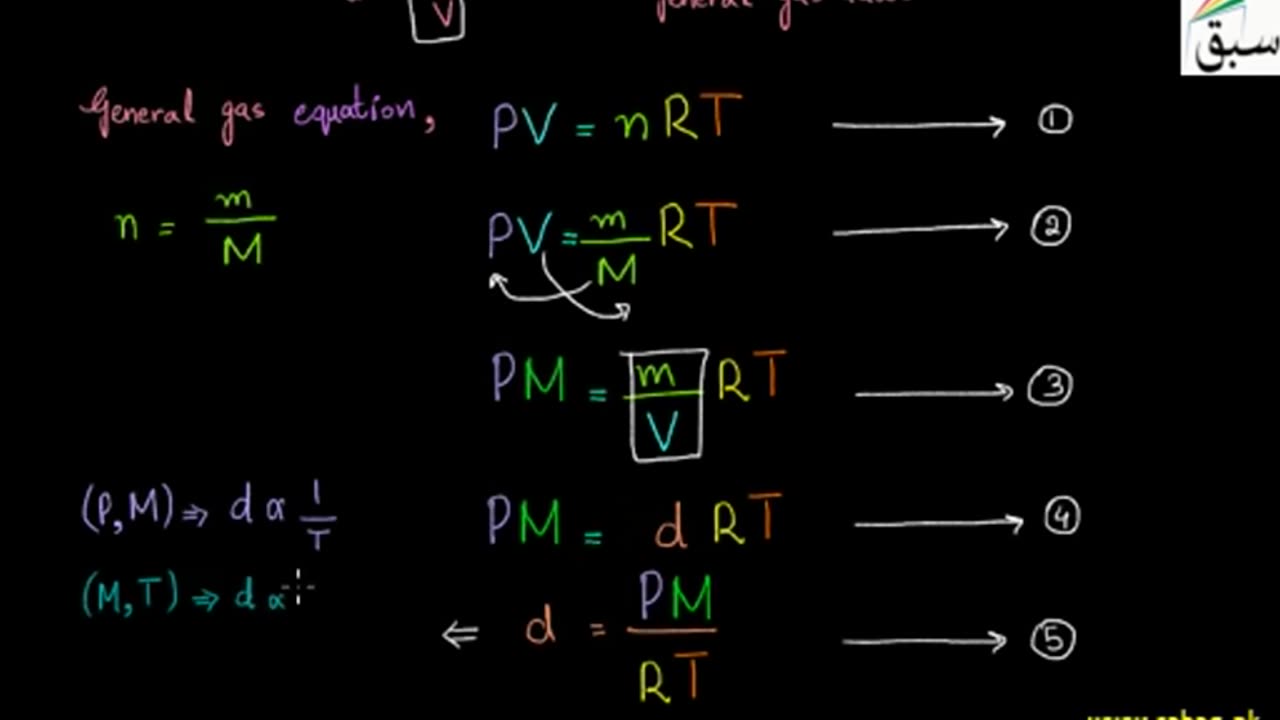 V
general gas
سبق
General gas equation, PV = nRT → ①
n = m/M PV = m/M RT → ②
PM = m/V RT → ③
(P,M) ⇒ d ∝ 1/T PM = d RT → ④
(M,T) ⇒ d ∝
⇐ d = PM/RT → ⑤